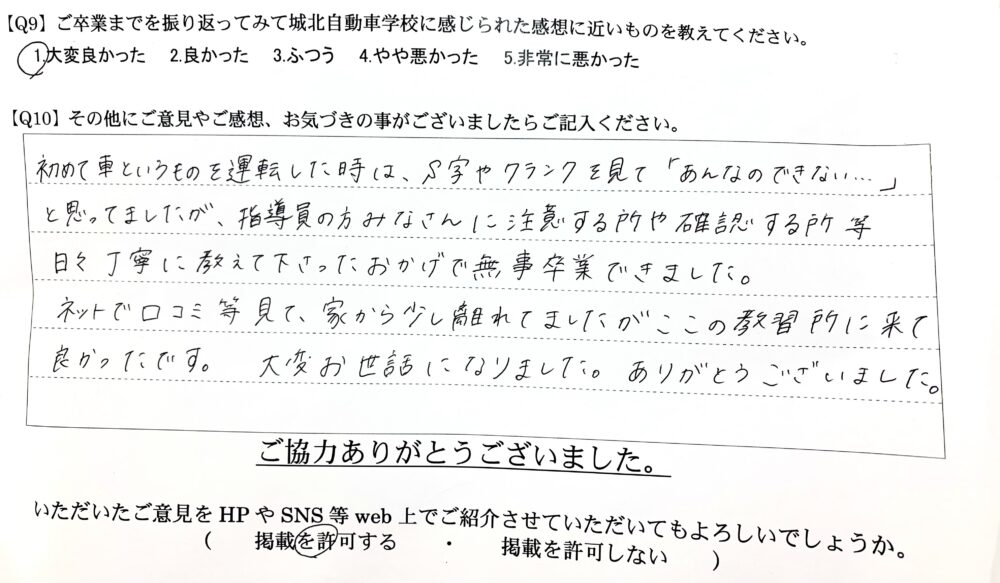 【Q9】ご卒業までを振り返ってみて城北自動車学校に感じられた感想に近いものを教えてください。
1.大変良かった 2.良かった 3.ふつう 4.やや悪かった 5.非常に悪かった
【Q10】その他にご意見やご感想、お気づきの事がございましたらご記入ください。
初めて車というものを運転した時は、S字やクランクを見て「あんなのできない…」
と思ってましたが、指導員の方みなさんに注意する所や確認する所等
日々丁寧に教えて下さったおかげで無事卒業できました。
ネットで口コミ等見て、家から少し離れてましたがここの教習所に来て
良かったです。 大変お世話になりました。ありがとうございました。
ご協力ありがとうございました。
いただいたご意見をHPやSNS等web上でご紹介させていただいてもよろしいでしょうか。
( 掲載を許可する ・ 掲載を許可しない )